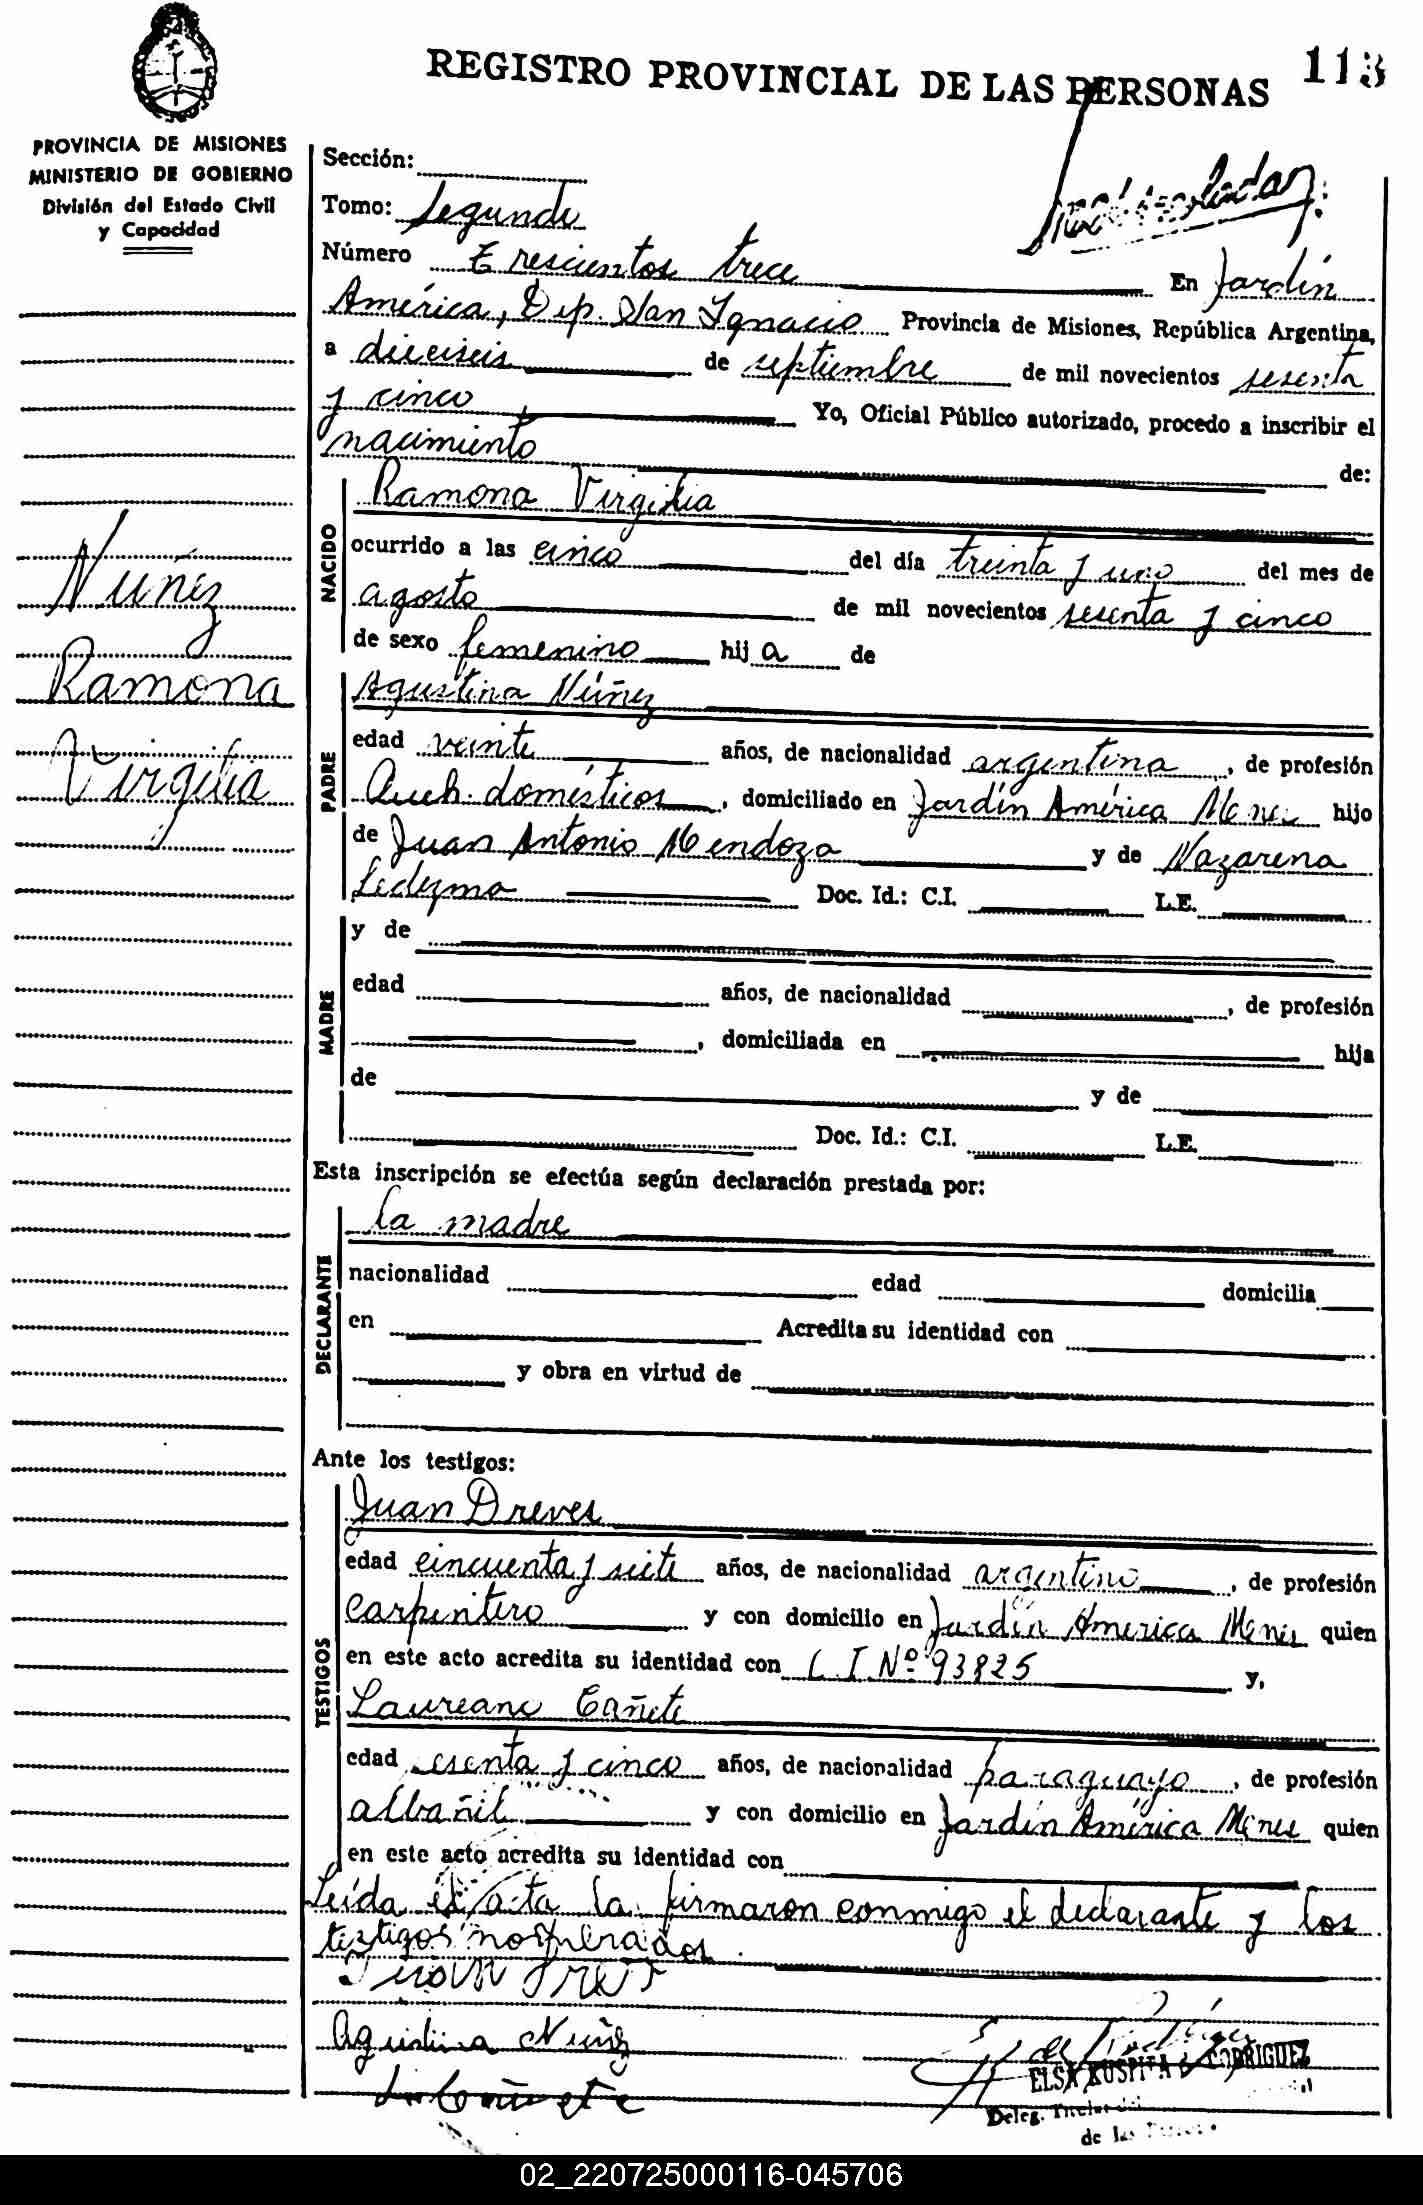 REGISTRO PROVINCIAL DE LAS PERSONAS
113
PROVINCIA DE MISIONES
MINISTERIO DE GOBIERNO
División del Estado Civil
y Capacidad
Núñez
Ramona
Virgilia
Sección:
Tomo: Segundo
Número Trescientos trece En Jardín
América, Dep. San Ignacio Provincia de Misiones, República Argentina,
a dieciseis de septiembre de mil novecientos sesenta
y cinco Yo, Oficial Público autorizado, procedo a inscribir el
nacimiento de:
NACIDO
Ramona Virgilia
ocurrido a las cinco del día treinta y uno del mes de
agosto de mil novecientos sesenta y cinco
de sexo femenino hija de
PADRE
Agustina Núñez
edad veinte años, de nacionalidad argentina, de profesión
Queh. domésticos, domiciliado en Jardín América Mnes hijo
de Juan Antonio Mendoza y de Nazarena
Ledezma Doc. Id.: C.I. L.E.
MADRE
y de
edad años, de nacionalidad , de profesión
, domiciliada en hija
de y de
Doc. Id.: C.I. L.E.
Esta inscripción se efectúa según declaración prestada por:
DECLARANTE
la madre
nacionalidad edad domicilia
en Acredita su identidad con
y obra en virtud de
Ante los testigos:
TESTIGOS
Juan Dreves
edad cincuenta y siete años, de nacionalidad argentino, de profesión
carpintero y con domicilio en Jardín America Mnes quien
en este acto acredita su identidad con C.I. Nº 93825 y,
Laureano Cañete
edad sesenta y cinco años, de nacionalidad paraguayo, de profesión
albañil y con domicilio en Jardín América Mnes quien
en este acto acredita su identidad con
Leída el acta la firmaron conmigo el declarante y los
testigos nombrados.
Juan
Agustina Nuñez
L. Cañete
ELSA KUSPITA RODRIGUEZ
Deleg. Titular
de las
02_220725000116-045706